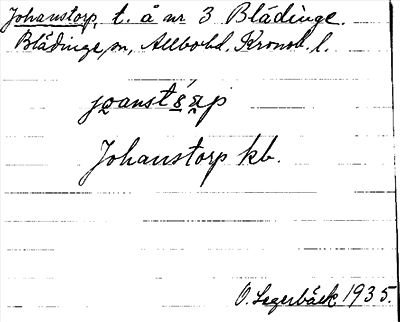 Johanstorp, t. å nr 3 Blädinge.
Blädinge sn, Allbo hd. Kronob. l.
Johanstorp kb.
O. Lagerbäck 1935.